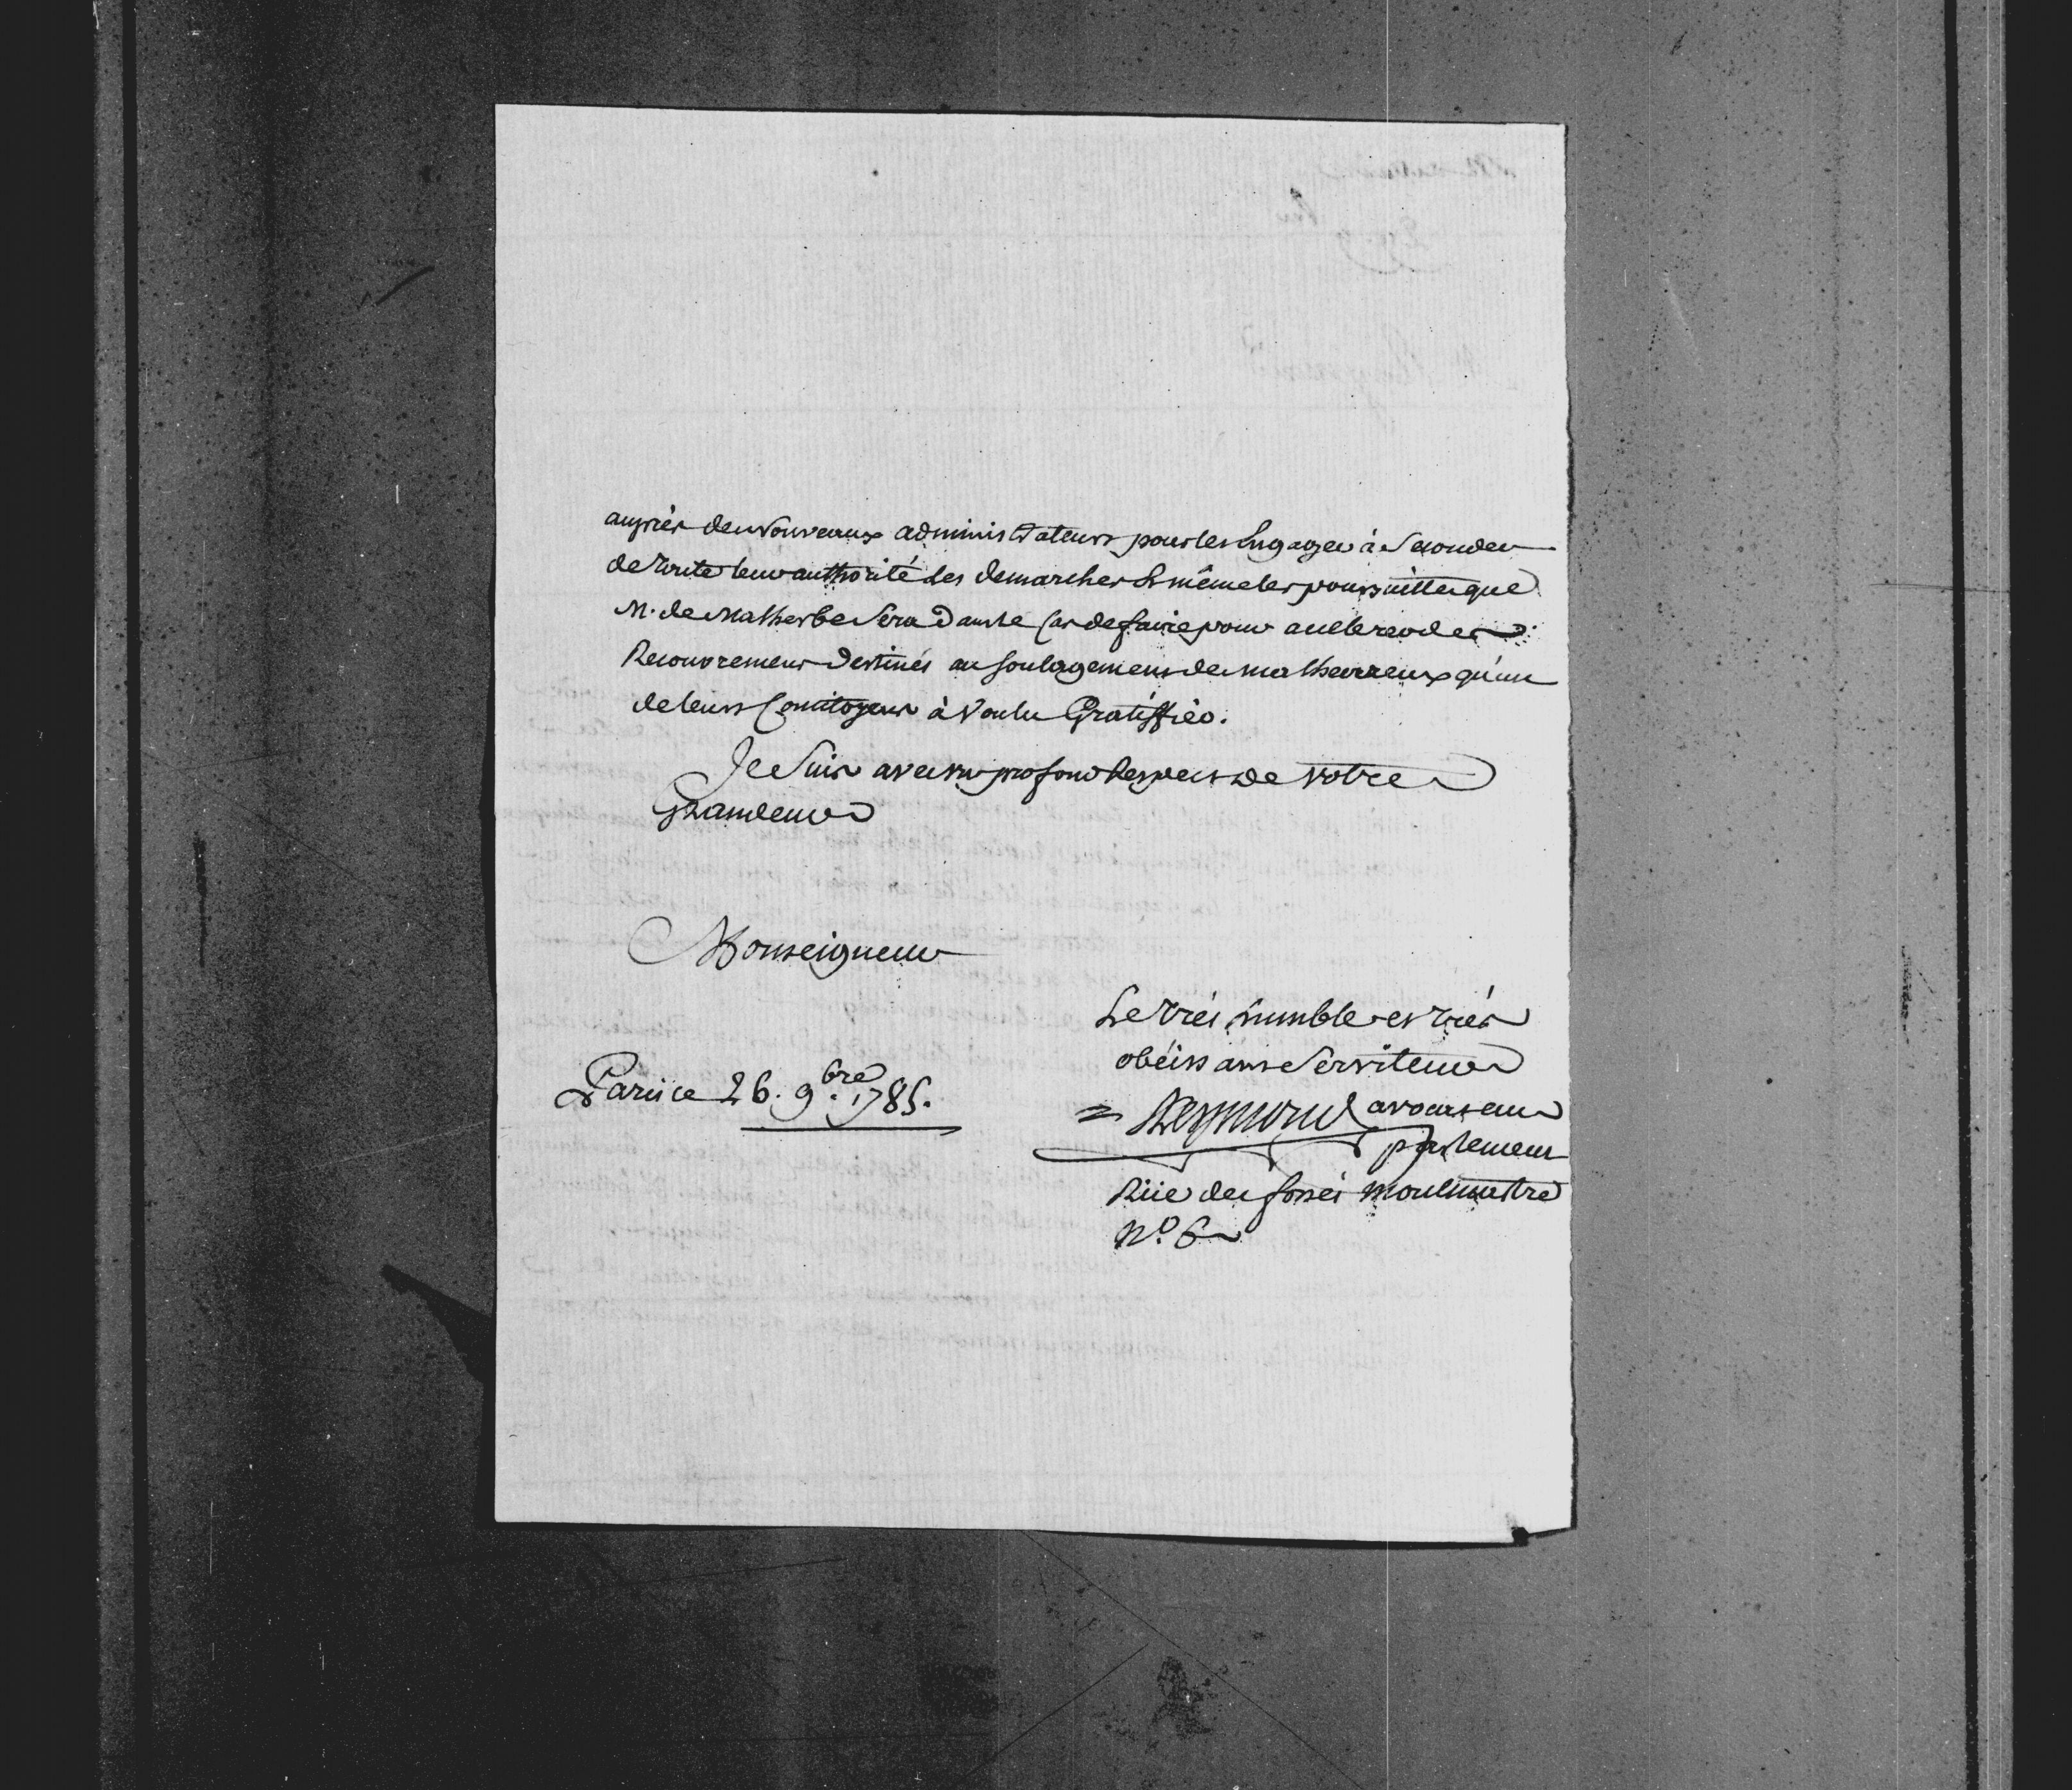 auprès des Nouveaux administrateurs pour les Engager à Seconder
de toute leur authorité les demarches & même les poursuittes que
M. de Malherbe Sera dans le Cas de faire pour accelerer des
Recouvremens destinés au soulagement des malheureux qu'un
de leurs Concitoyens à Voulu Gratiffier.
Je Suis avec un profond Respect de votre
Grandeur
Monseigneur
Le très humble et très
obéissant Serviteur
Paris ce 26. 9.bre 1785.
= Reymond avocat au
parlement
Rüe des fossés Montmartre
N.o 6